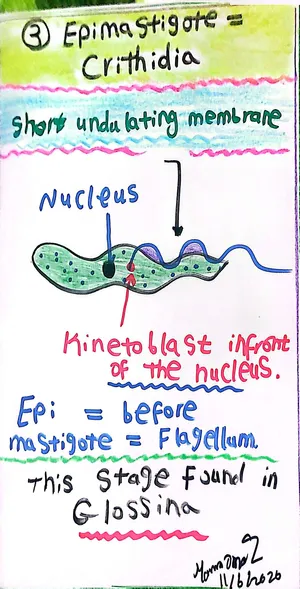 ③ Epimastigote =
Crithidia
Short undulating membrane
Nucleus
Kinetoblast infront
of the nucleus.
Epi = before
mastigote = Flagellum
This stage found in
Glossina
11/6/2020